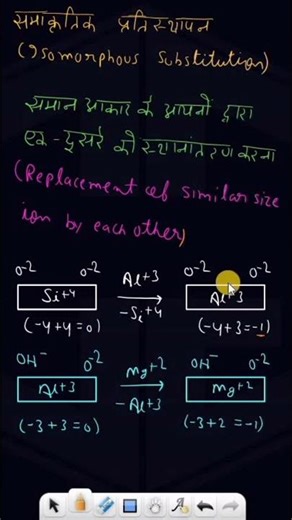 समाकृतिक प्रतिस्थापन
(Isomorphous Substitution)
समान आकार के आयनों द्वारा
एक-दूसरे को स्थानांतरण करना
(Replacement of similar size
ion by each other)
O-2 O-2 Al+3 O-2 O-2
Si+4 -Si+4 Al+3
(-4+4=0) (-4+3=-1)
OH- O-2 Mg+2 OH- O-2
Al+3 -Al+3 Mg+2
(-3+3=0) (-3+2=-1)